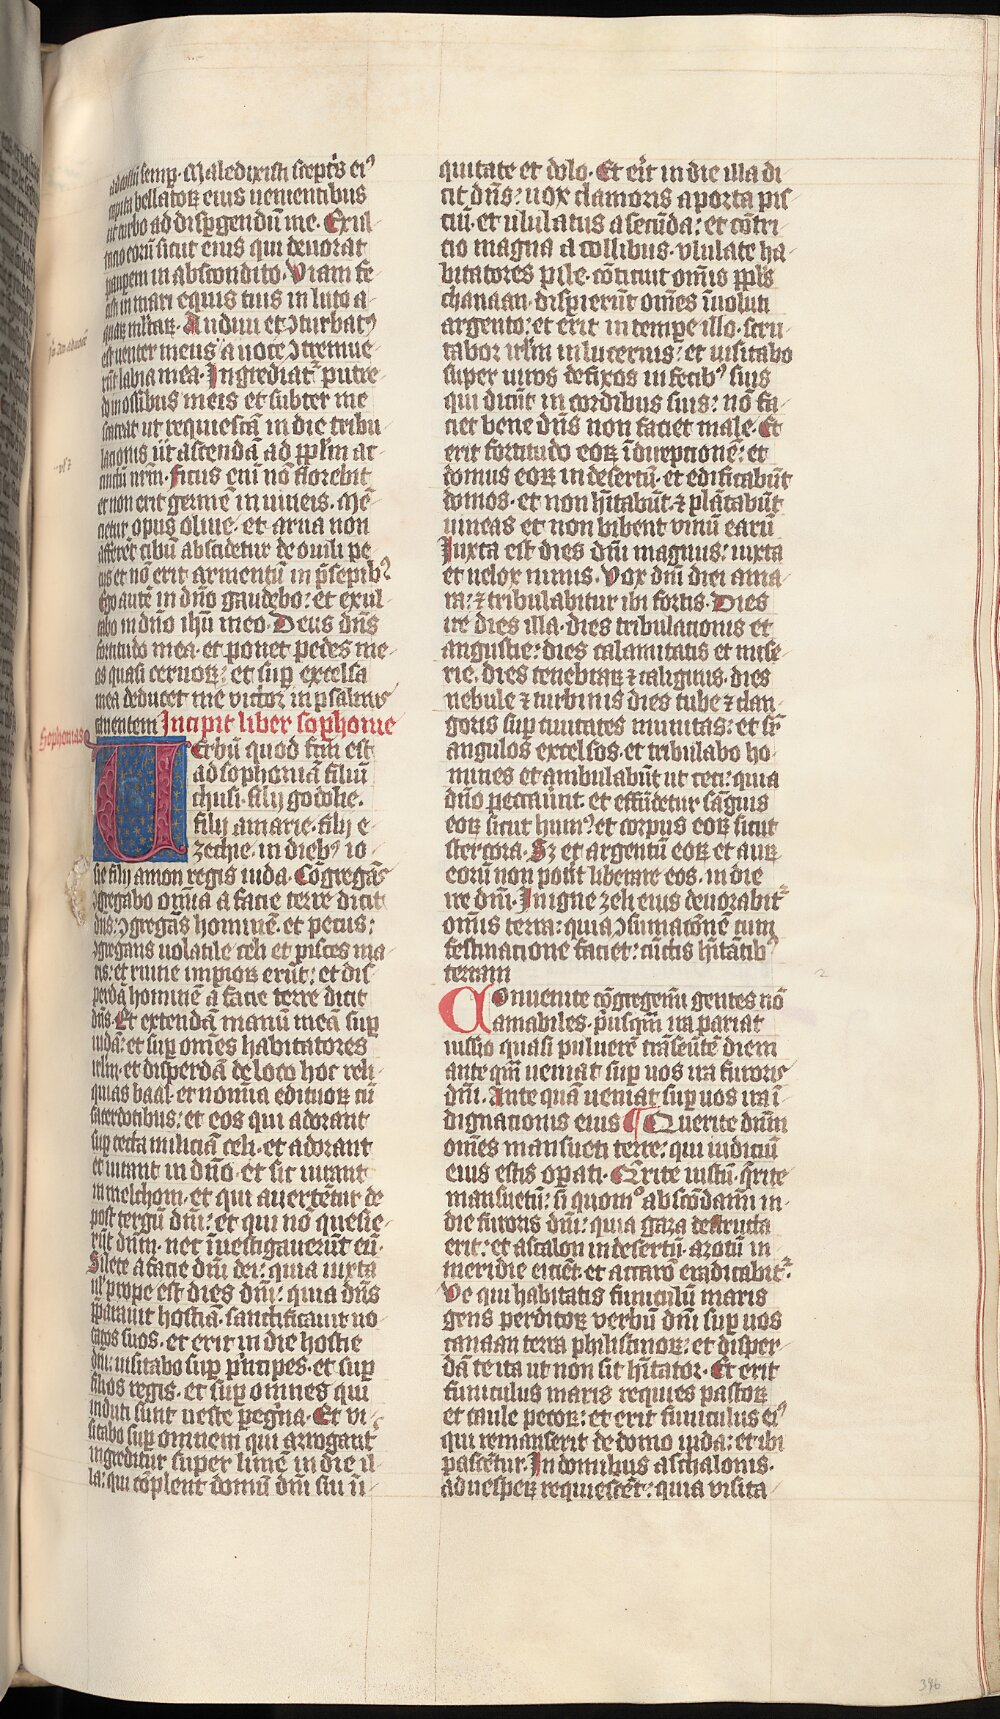 ad collū semꝑ. Maledixisti sceptꝭs eiꝰ
capita bellatoꝝ eius uenientibus
ut turbo ad dispgendū me. Exul
tacio eorū sicut eius qui deuorat
pauꝑem in abscondito. Viam fe
cisti in mari equis tuis in luto a
quaꝝ mltaꝝ. Audiui et ɔturbatꝰ
est uenter meus a uoce ɔtremue
rūt labia mea. Ingrediat᷑ putre
do in ossibus meis et subter me
scateat ut requiescā in die tribu
lacionis ut ascendā ad ppl̄m ac
cinctū nr̄m. Ficus enī nō florebit
et non erit germē in uineis. Mē
cietur opus oliue. et arua non
afferēt cibū abscidetur de ouili pe
cus et nō erit armentū in p̄sepibꝰ
Ego autē in dn̄o gaudebo: et exul
tabo in dn̄o ihū meo. Deus dn̄s
fortitudo mea. et ponet pedes me
os quasi ceruoꝝ: et suꝑ excelsa
mea deducet me victor in psalmis
canentem Incipit liber sophonie
Sophonias
Verbū quod fcm̄ est
ad sophoniā filiū
chusi. filij godolie.
filij amarie. filij e
zechie. in diebꝰ io
sie filij amon regis iuda. Cōgregās
ɔgregabo om̄ia a facie terre dicit
dn̄s: ɔgregās hominē. et pecus:
ɔgregans uolatile celi et pisces ma
ris: et ruine impioꝝ erūt: et dis
perdā hominē a facie terre dicit
dn̄s. Et extendā manū meā suꝑ
iudā: et suꝑ om̄es habitatores
irl̄m. et disperdā de loco hoc reli
quias baal. et nomīa edituoꝝ cū
sacerdotibus: et eos qui adorant
suꝑ tecta miliciā celi. et adorant
et iurant in dn̄o. et sic iurant
in melchom. et qui auertētur de
post tergū dn̄i: et qui nō quesie
rūt dn̄m. nec īuestigauerūt eū.
Silete a facie dn̄i dei: quia iuxta
ul̓ prope est dies dn̄i: quia dn̄s
p̄parauit hostiā. sanctificauit uo
catos suos. et erit in die hostie
dn̄i: uisitabo suꝑ p̓ncipes. et suꝑ
filios regis. et suꝑ omnes qui
induti sunt ueste pegͥna. Et vi
sitabo suꝑ omnem qui arrogant᷑
ingreditur super limē in die il
la: qui cōplent domū dn̄i sui ī
quitate et dolo. Et eīt in die illa di
cit dn̄s: uox clamoris a porta pis
ciū. et ululatus a secūda: et cōtri
cio magna a collibus. vlulate ha
bitatores pile. cōticuit om̄is ppl̄s
chanaan. disperierūt om̄es īuoluti
argento: et erit in tempe illo. scru
tabor irl̄m in lucernis: et uisitabo
super uiros defixos in fecibꝰ suis
qui dicūt in cordibus suis: nō fa
ciet bene dn̄s non faciet male. Et
erit fortitudo eoꝝ ī direptionē: et
domus eoꝝ in desertū. et edificabūt
domos. et non hītabūt. ⁊ plātabūt
uineas et non bibent vinū earū
Iuxta est dies dn̄i magnus: iuxta
et uelox nimis. Vox dn̄i diei ama
ra: ⁊ tribulabitur ibi fortis. Dies
ire dies illa. dies tribulationis et
angustie: dies calamitatis et mise
rie. dies tenebraꝝ ⁊ caliginis. dies
nebule ⁊ turbinis dies tube ⁊ clan
goris suꝑ ciuitates munitas: et sꝑ
angulos excelsos. et tribulabo ho
mines et ambulabūt ut ceci: quia
dn̄o peccauūt. et effūdetur sāguis
eoꝝ sicut humꝰ. et corpus eoꝝ sicut
stercora. Sꝫ et argentū eoꝝ et auꝝ
eorū non potīt liberare eos. in die
ire dn̄i. In igne zeli eius deuorabit᷑
om̄is terra: quia ɔsumatōnē cum
festinacione faciet: cūctis hītātibꝰ
terram
Conuenite cōgregemī gentes nō
amabiles. p̓usqm̄ ita pariat
iussio quasi puluerē trāseūtē diem
ante qm̄ ueniat suꝑ uos ira furoris
dn̄i. Ante quā ueniat suꝑ uos ira ī
dignationis eius ¶ Querite dn̄m
om̄es mansueti terre: qui iudiciū
eius estis oꝑati. Q̄rite iustū. q̄rite
mansuetū: si quomᵒ abscōdamī in
die furoris dn̄i: quia gaza destructa
erit: et ascalon in desertū. azotū in
meridie eicīet. et accarō eradicabit᷑.
Ve qui habitatis funiculū maris
gens perditoꝝ verbū dn̄i suꝑ uos
canaan terra philistinoꝝ: et disper
dā te ita ut non sit hītator. Et erit
funiculus maris requies pastoꝝ
et caule pecoꝝ: et erit funiculus eiꝰ
qui remanserit de domo iuda: et ibi
pascētur. In domibus aschalonis.
ad uesꝑeꝝ requiescēt: quia visita
396